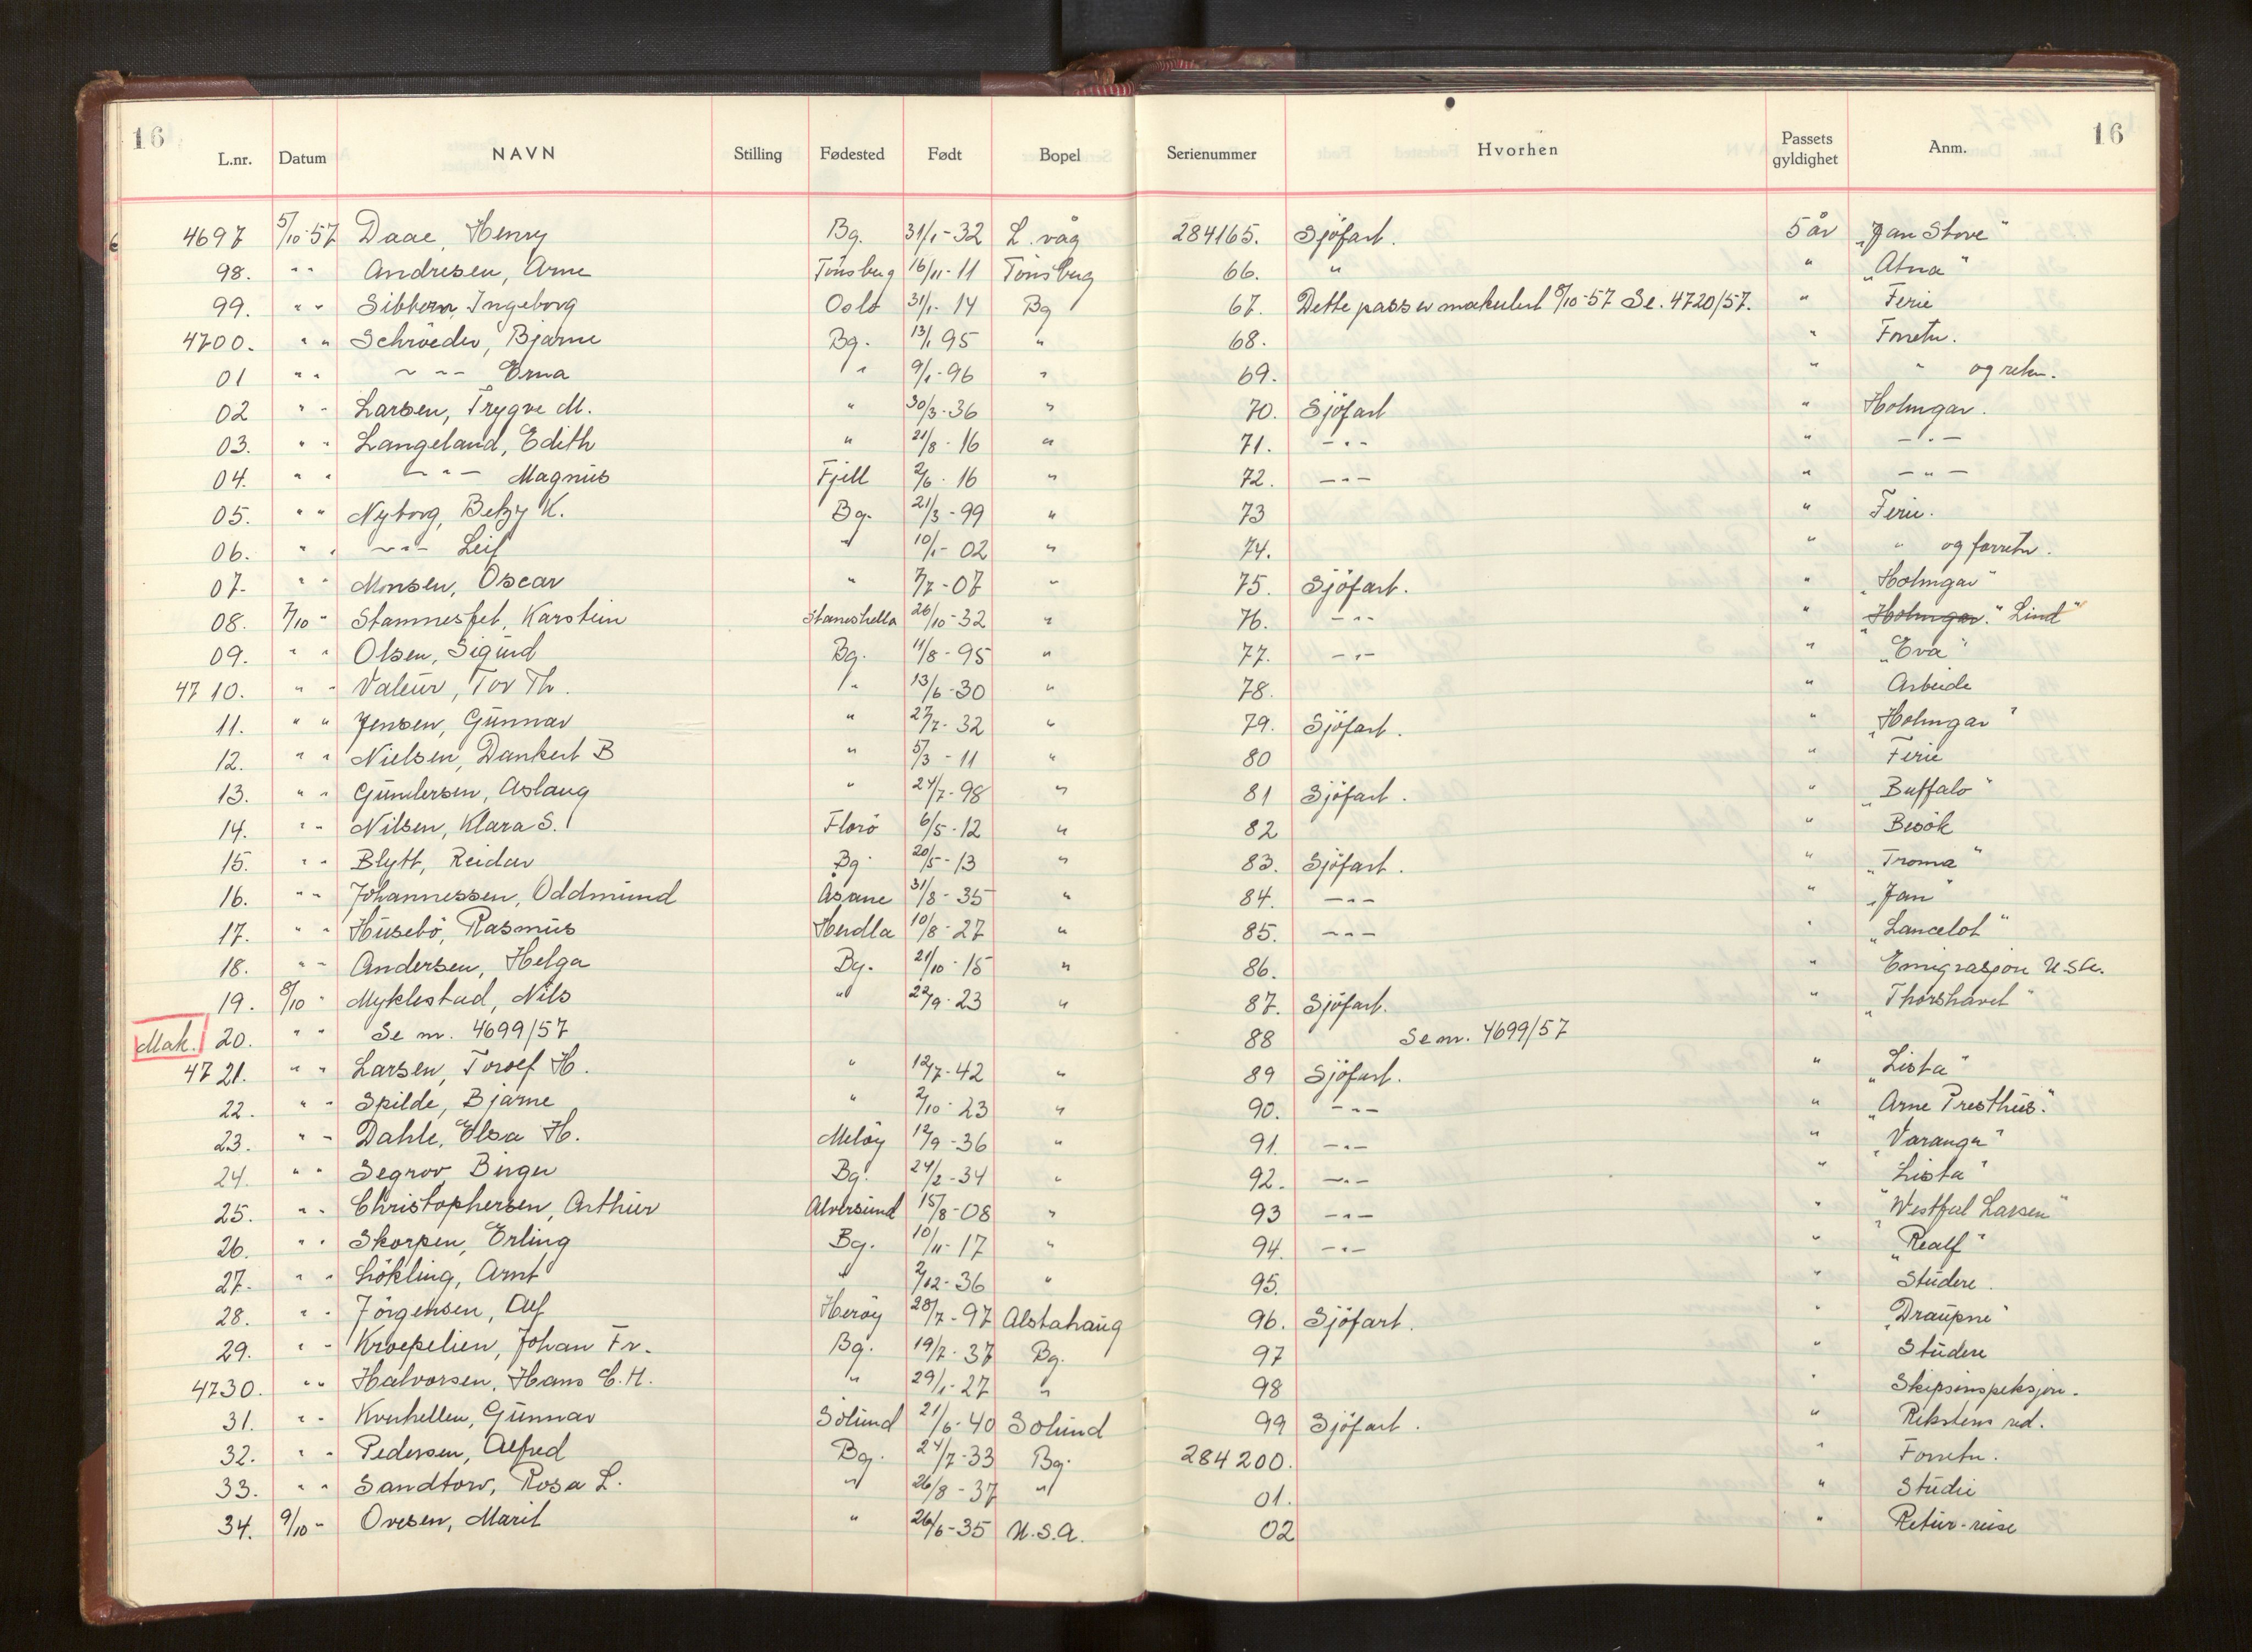 16
16
L.nr. Datum NAVN Stilling Fødested Født Bopel Serienummer Hvorhen Passets gyldighet Anm.
4697 5/10-57 Daae, Henry Bg. 31/1-32 L. våg 284165. Sjöfart. 5 år „Jan Stove"
98. " " Andresen, Arne Tönsberg 16/11-11 Tönsberg 66. " " „Atna"
99. " " Sibbern, Ingeborg Oslo 31/1-14 Bg 67. Dette pass er makulert 8/10-57 Se. 4720/57. " Ferie
4700. " " Schröeder, Bjarne Bg. 13/1 95 " 68. " Forretn.
01 " " — " — Erna " 9/1-96 " 69. " " og rekr.
02 " " Larsen, Trygve M. " 30/3-36 " 70. Sjöfart " Holmgar.
03. " " Langeland, Edith " 21/8-16 " 71. — " — " — " —
04. " " — " — Magnus Fjell 2/6-16 " 72. — " — " — " —
05. " " Nyborg, Betzy K. Bg. 21/3-99 " 73 " Ferie.
06. " " — " — Leif " 10/1-02 " 74. " " og forretn.
07. " " Monsen, Oscar " 7/7-07 " 75. Sjöfart. " „Holmgar"
08. 7/10 " Stamnesfet, Karstein Stanghella 26/10-32 " 76. — " — " „Holmgar." Lind"
09. " " Olsen, Sigurd Bg. 11/8-95 " 77. — " — " „Eva"
4710. " " Valeur, Tor Th. " 13/6-30 " 78. " Arbeide
11. " " Jensen, Gunnar " 27/7-32 " 79. Sjöfart. " „Holmgar"
12. " " Nielsen, Dankert B " 5/3-11 " 80 " Ferie
13. " " Gundersen, Aslaug " 24/7-98 " 81 Sjöfart. " „Buffalo"
14. " " Nilsen, Klara S. Florö 6/5-12 " 82 " Besök
15. " " Blytt, Reidar Bg. 20/5-13 " 83. Sjöfart. " „Troma"
16. " " Johannessen, Oddmund Åsane 31/8-35 " 84. — " — " „Jan"
17. " " Husebö, Rasmus Herdla 10/8-27 " 85. — " — " „Lancelot"
18. " " Andersen, Helga Bg. 21/10-15 " 86. " Emigrasjon USA.
19. 8/10 " Myklestad, Nils " 22/9-23 " 87. Sjöfart. " „Thorshavet"
Mak. 20. " " Se nr. 4699/57 88 Se nr. 4699/57
4721. " " Larsen, Torolf H. " 12/7-42 " 89 Sjöfart. " „Lista"
22. " " Spilde, Bjarne " 2/10-23 " 90. — " — " „Arne Presthus."
23. " " Dahle, Elsa H. Melöy 12/9-36 " 91. — " — " „Varanger"
24. " " Segrov, Birger Bg. 24/2-34 " 92. — " — " Lista"
25. " " Christophersen, Arthur Alversund 15/8-08 " 93 — " — " „Westfal Larsen"
26. " " Skorpen, Erling Bg. 10/11-17 " 94. — " — " „Realf"
27. " " Lökling, Arnt " 2/12-36 " 95. " Studere.
28. " " Jörgensen, Alf Heröy 28/7-97 Alstahaug 96. Sjöfart. " „Draupne"
29. " " Kroepelien, Johan Fr. Bg. 19/7-37 Bg. 97 " Studere
4730. " " Halvorsen, Hans C.H. " 29/1-27 " 98 " Skipsinspeksjon.
31. " " Kverhellen, Gunnar Solund 21/6-40 Solund 99 Sjöfart. " Rekstens red.
32. " " Pedersen, Alfred Bg. 24/7-33 Bg. 284200. " Forretn.
33. " " Sandtorv, Rosa L. " 26/8-37 " 01. " Studie
34. 9/10 " Ovesen, Marit " 26/6-35 U.S.A. 02 " Retur-reise